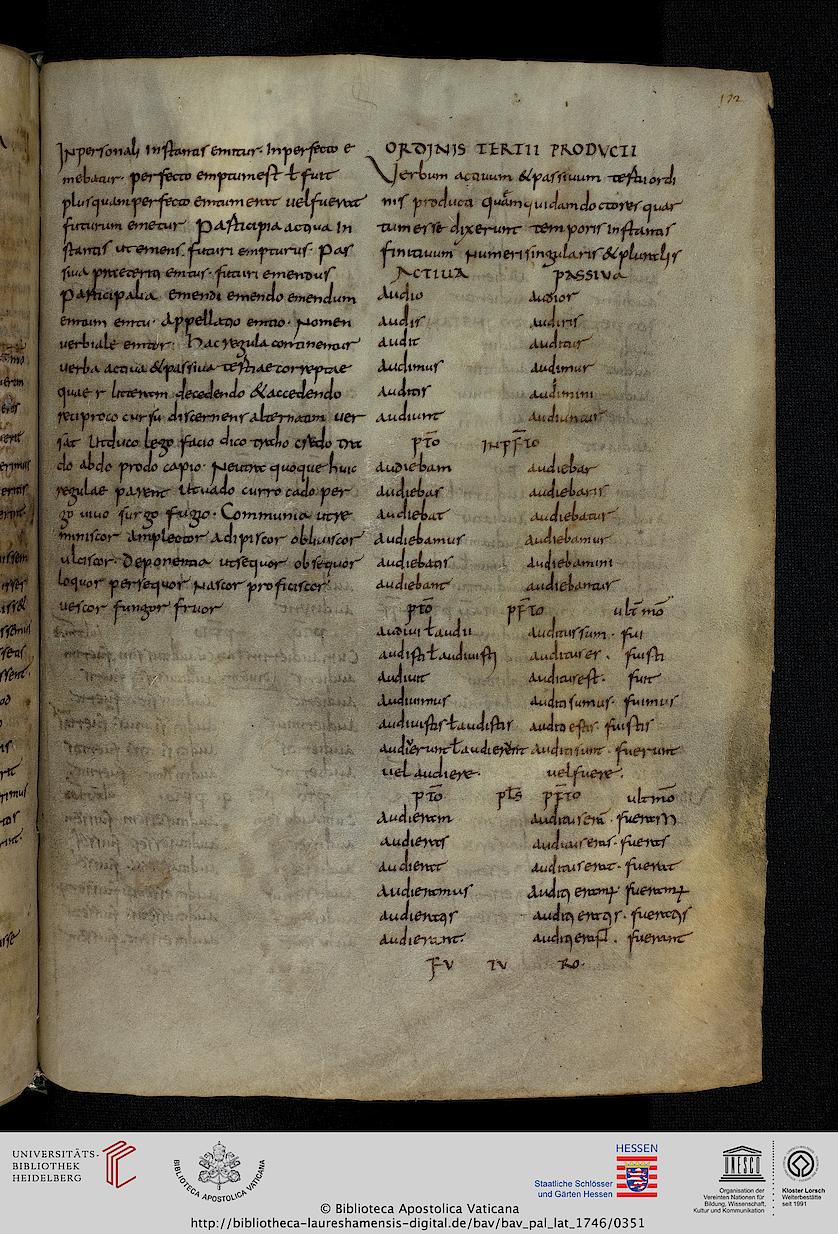 172
Inpersonali Instantis emitur. Inperfecto e
mebatur. perfecto emptum est ł fuit
plusquamperfecto emtum erat vel fuerat
futurum emetur Participia activa In
stantis ut emens. futuri empturus. Pas
siva praeteriti emtus. futuri emendus
Participalia emendi emendo emendum
emtum emtu. Appellatio emtio. Nomen
verbiale emtor. Hac regula continentur
verba activa & passiva tertiae correptae
quae r litteram decedendo & accedendo
reciproco cursu discernens alternatim ver
sat Ut duco lego facio dico traho credo tra
do abdo prodo capio. Neutra quoque huic
regulae parent Ut vado curro cado per
go vivo surgo fugio. Communia ut re
miniscor amplector adipiscor obliviscor
ulciscor. Deponentia ut sequor obsequor
loquor persequor Nascor proficiscor
vescor fungor fruor
ORDINIS TERTII PRODVCTI
Verbum activum & passivum tertii ordi
nis producti quam quidam doctores quar
tum esse dixerunt temporis Instantis
finitivum Numeri singularis & pluralis
ACTIVA PASSIVA
Audio audior
audis audiris
audit auditur
audimus audimur
auditis audimini
audiunt audiuntur
pťo INpf̄to
audiebam audiebar
audiebas audiebaris
audiebat audiebatur
audiebamus audiebamur
audiebatis audiebamini
audiebant audiebantur
pťo pf̄to ulťmo
audivi ł audii auditus sum. fui
audisti ł audivisti auditus es. fuisti
audivit auditus est. fuit
audivimus auditi sumus. fuimus
audivistis ł audistis auditi estis. fuistis
audiverunt ł audierunt auditi sunt. fuerunt
vel audiere. vel fuere.
pťo pls pf̄to ulťmo
Audieram auditus erā. fueram
audieras auditus eras. fueras
audierat auditus erat. fuerat
Audieramus
audierant.
FV TV RO.
UNIVERSITÄTS-
BIBLIOTHEK
HEIDELBERG
BIBLIOTHECA APOSTOLICA VATICANA
HESSEN
Staatliche Schlösser
und Gärten Hessen
UNESCO
Organisation der
Vereinten Nationen für
Bildung, Wissenschaft,
Kultur und Kommunikation
Kloster Lorsch
Welterbestätte
seit 1991
© Biblioteca Apostolica Vaticana
http://bibliotheca-laureshamensis-digital.de/bav/bav_pal_lat_1746/0351